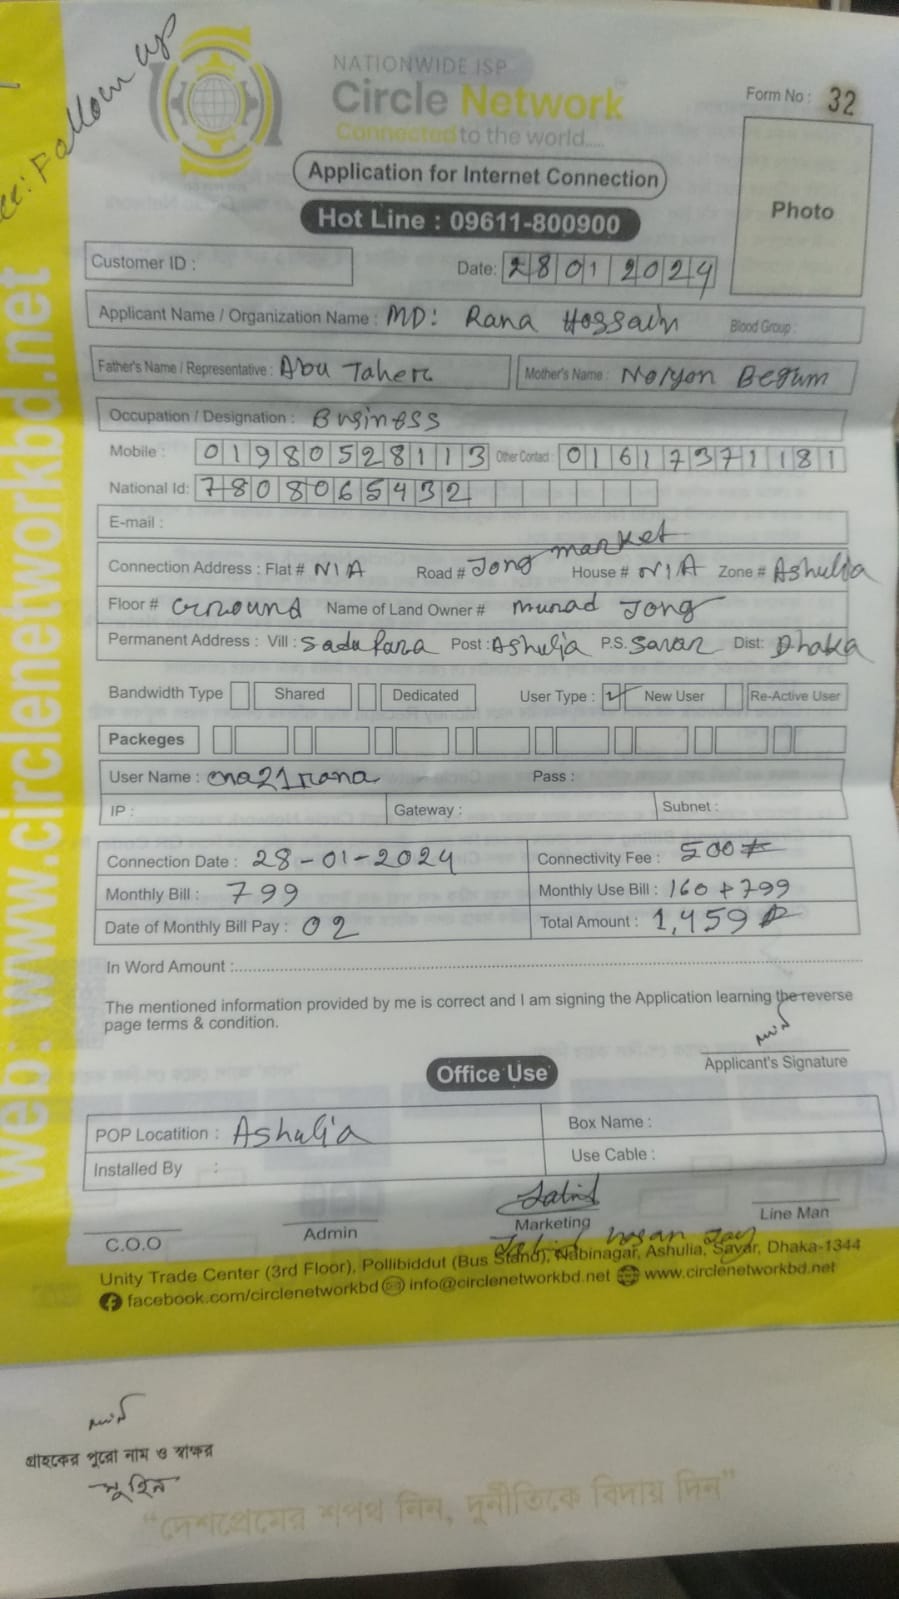 Follow up
NATIONWIDE ISP
Circle Network
Connected to the world.....
Form No : 32
Application for Internet Connection
Hot Line : 09611-800900
Photo
Customer ID :
Date: 28 01 2024
Applicant Name / Organization Name : MD: Rana Hossain Blood Group :
Father's Name / Representative : Abu Taher Mother's Name : Noryon Begum
Occupation / Designation : Business
Mobile : 01980528113 Other Contact : 01617371181
National Id: 7808065432
E-mail :
Connection Address : Flat # N/A Road # Jong market House # N/A Zone # Ashulia
Floor # Ground Name of Land Owner # Murad Jong
Permanent Address : Vill : Sadu Para Post : Ashulia P.S. Savar Dist: Dhaka
Bandwidth Type Shared Dedicated User Type : ✓ New User Re-Active User
Packeges
User Name : cna21rana Pass :
IP : Gateway : Subnet :
Connection Date : 28-01-2024 Connectivity Fee : 500
Monthly Bill : 799 Monthly Use Bill : 160 + 799
Date of Monthly Bill Pay : 02 Total Amount : 1,459
In Word Amount :
The mentioned information provided by me is correct and I am signing the Application learning the reverse
page terms & condition.
Applicant's Signature
Office Use
POP Locatition : Ashulia Box Name :
Installed By : Use Cable :
C.O.O Admin Marketing Line Man
Unity Trade Center (3rd Floor), Pollibiddut (Bus Stand), Nabinagar, Ashulia, Savar, Dhaka-1344
facebook.com/circlenetworkbd info@circlenetworkbd.net www.circlenetworkbd.net
web: www.circlenetworkbd.net
গ্রাহকের পুরো নাম ও স্বাক্ষর
"দেশপ্রেমের শপথ নিন, দুর্নীতিকে বিদায় দিন"